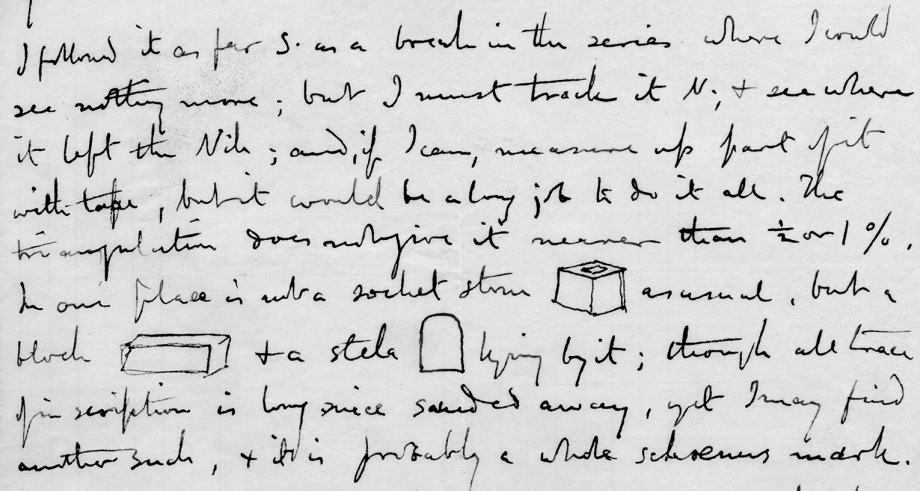 I followed it as far S. as a break in the series where I could
see nothing more ; but I must track it N ; + see where
it left the Nile ; and, if I can, measure up part of it
with tape , but it would be a long job to do it all . The
triangulation does not give it nearer than ½ or 1 % .
In one place is not a socket stone as usual , but a
block + a stela lying by it ; though all trace
of inscription is long since sanded away , yet I may find
another such , + it is probably a whole schoenus mark .